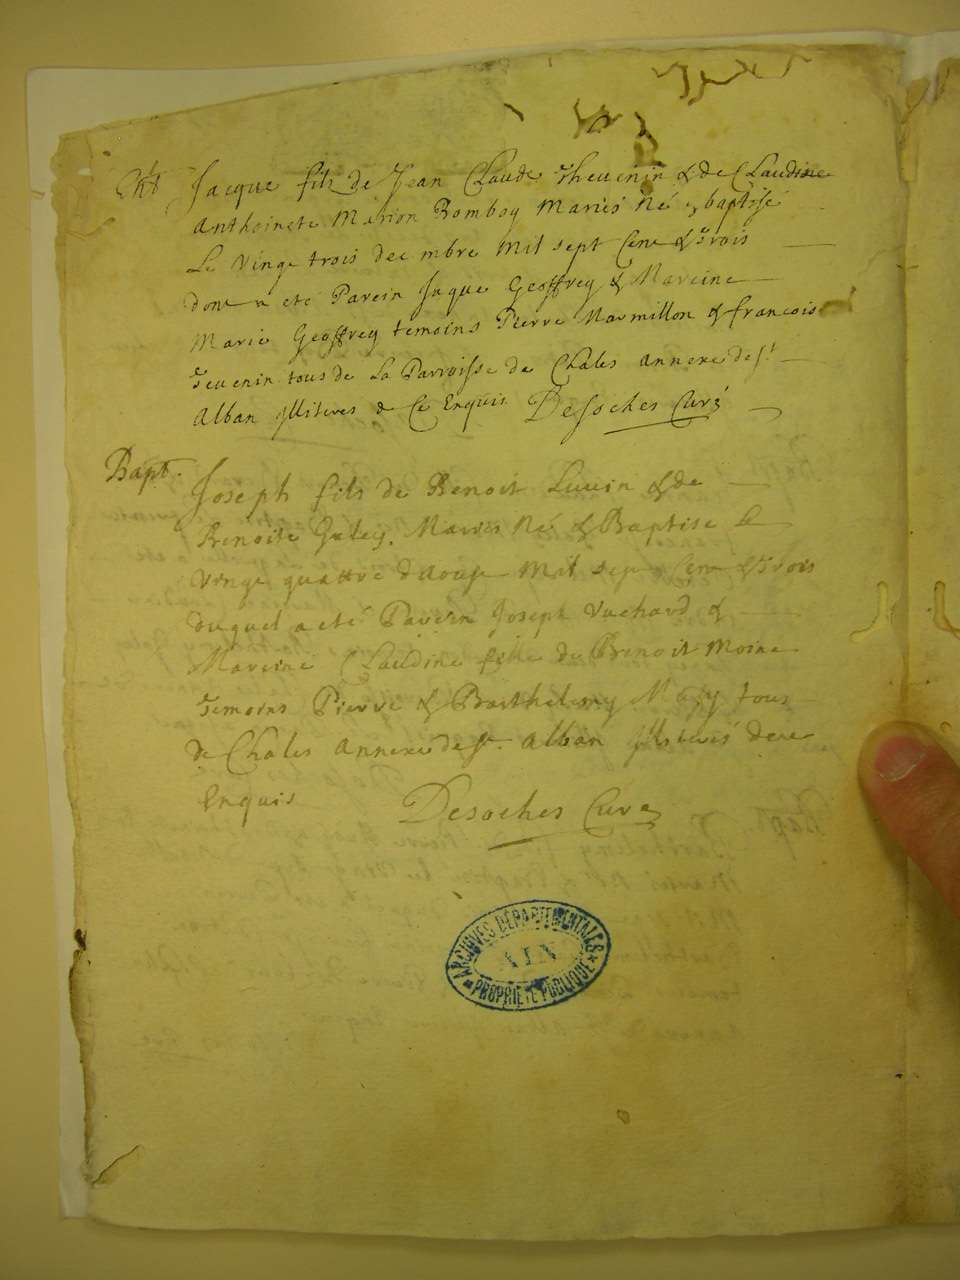 Jacque fils de Jean Claude Thevenin & de Claudine
Anthoinete Marion Bomboy Mariés Né & baptisé
Le Vingt trois decembre Mil sept Cent & trois
dont a eté Parein Jaque Geoffrey & Mareine
Marie Geoffrey temoins Pierre Marmillon & francois
Tevenin tous de La Parroisse de Chales annexe de st
Alban Illiteres de Ce Enquis Desoches Curé
Bapt.
Joseph fils de Benoit & de
Benoite Mariés Né & Baptise le
Vingt quattre d'aoust Mil sept Cent & trois
duquel a eté Parein Joseph Vuchard &
Mareine Claudine fille de Benoit Moine
Temoins Pierre & Barthelemy tous
de Chales annexe de st. Alban Illiterés de ce
Enquis Desoches Curé
ARCHIVES DÉPARTEMENTALES
AIN
PROPRIÉTÉ PUBLIQUE